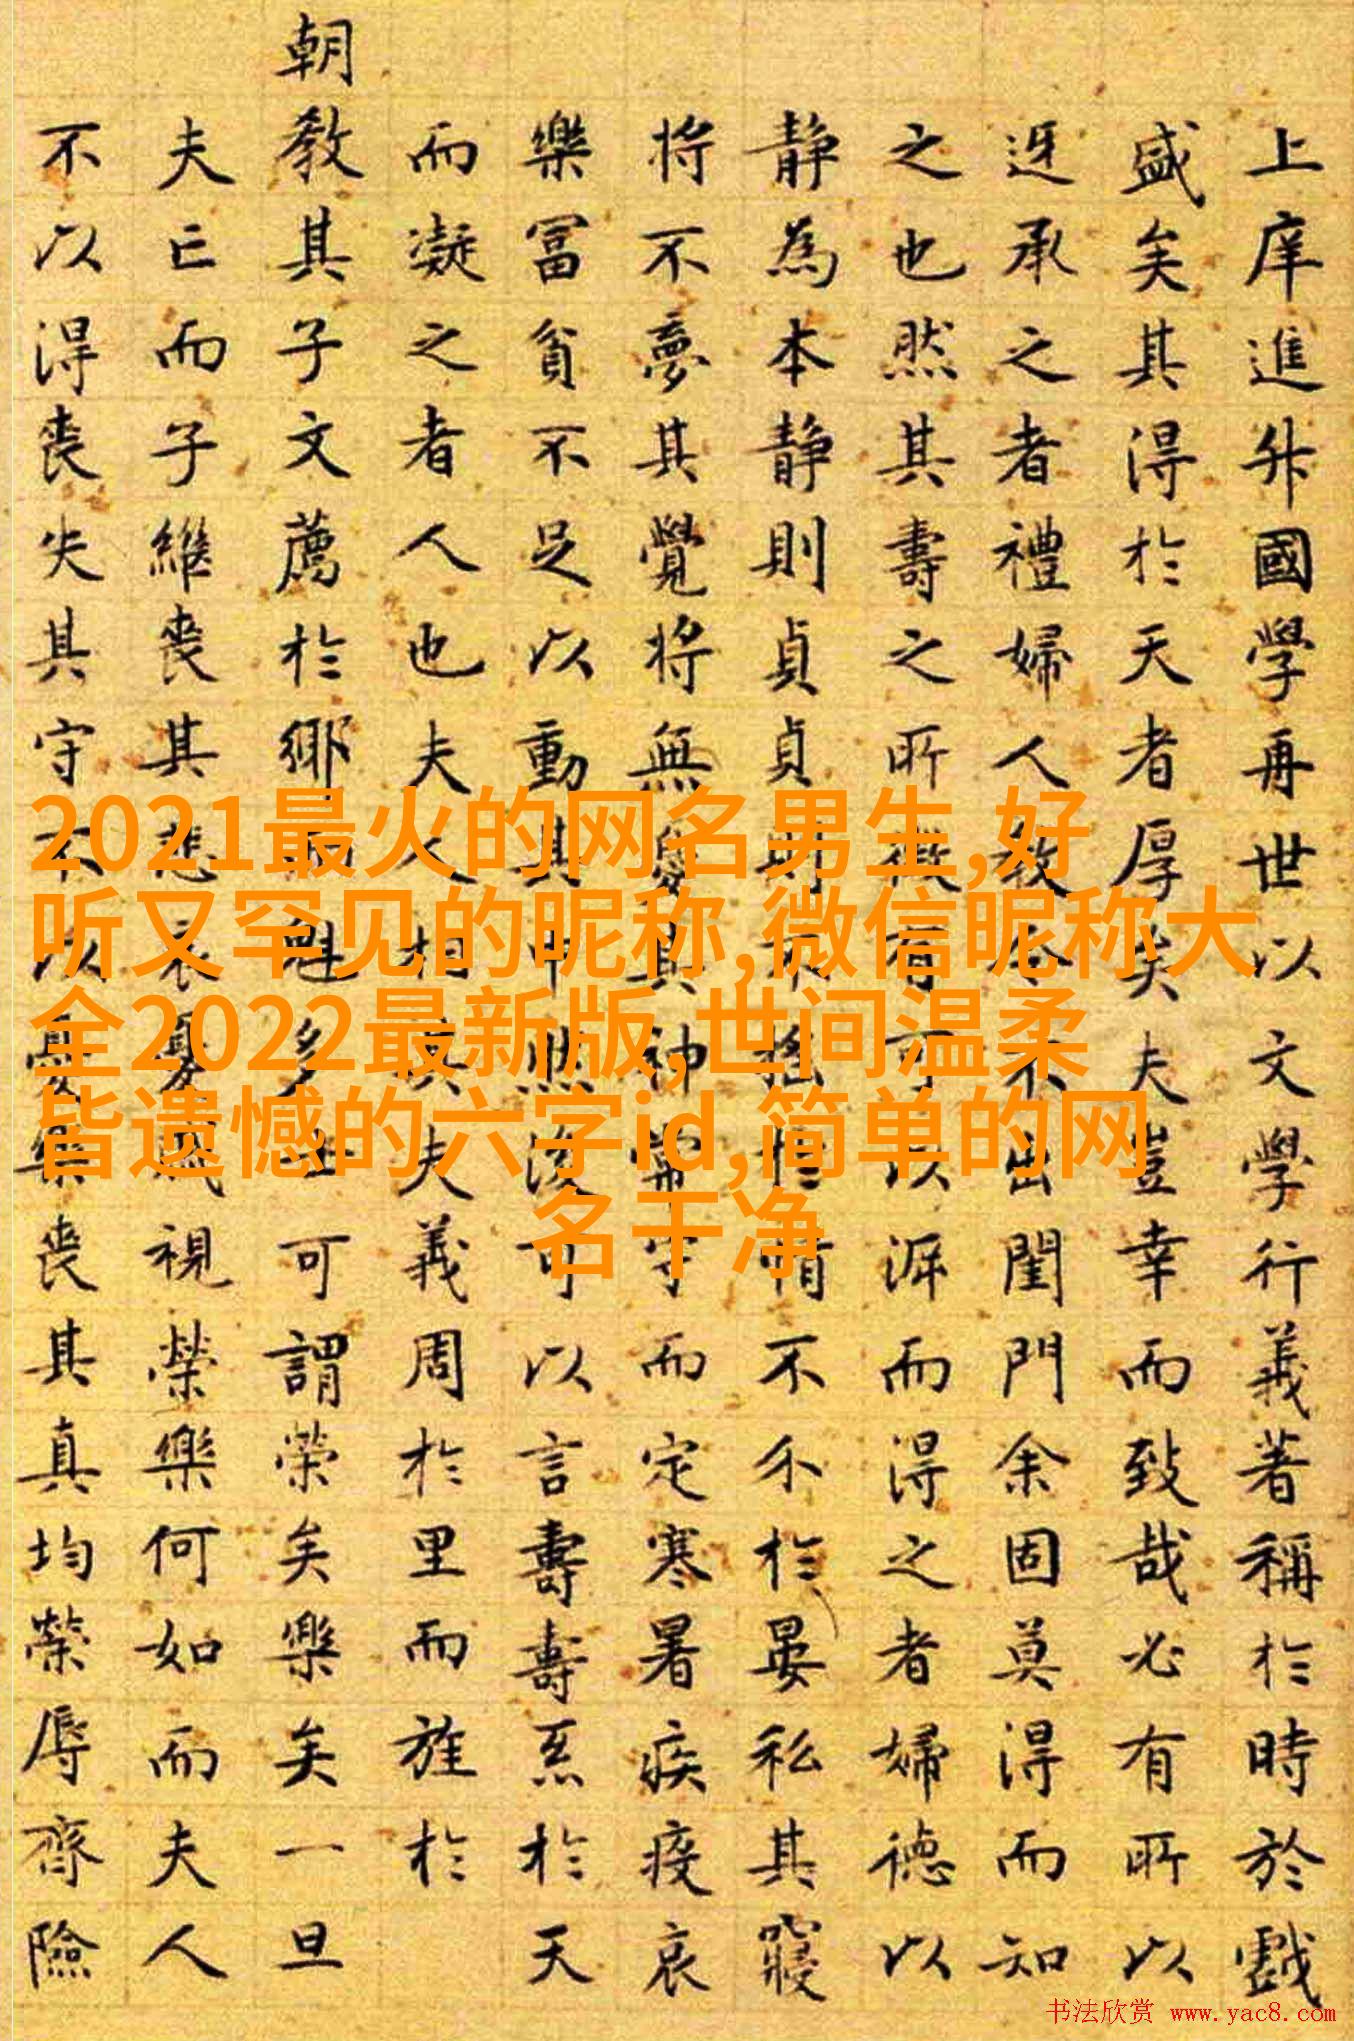 上庠進升國學再世以文學行義著稱於時於戲
盛矣其得於天者厚矣夫豈幸而致哉必有所以
迓承之者禮婦人教令不出閨門余固莫得而知
之也然其壽之所徵有可以涯而得之者婦德以
靜為本靜則貞貞則不搖於情不介於晏私其寢
將不夢其覺將無憂其神常守而定寒暑疾疫哀
樂富貧不足以動其中然後可以言壽壽悉於天
而凝之者人也夫人相其夫義周於里而旌於
朝教其子文薦於鄉多士可謂榮矣樂矣一旦
夫亡而子繼喪其悲哀憂戚視榮樂何如而夫人
不以得喪失其守不以憂樂喪其真均榮辱齊險
2021最火的网名男生,好
听又罕见的昵称,微信昵称大
全2022最新版,世间温柔
皆遗憾的六字id,简单的网
名干净
书法欣赏 www.yac8.com